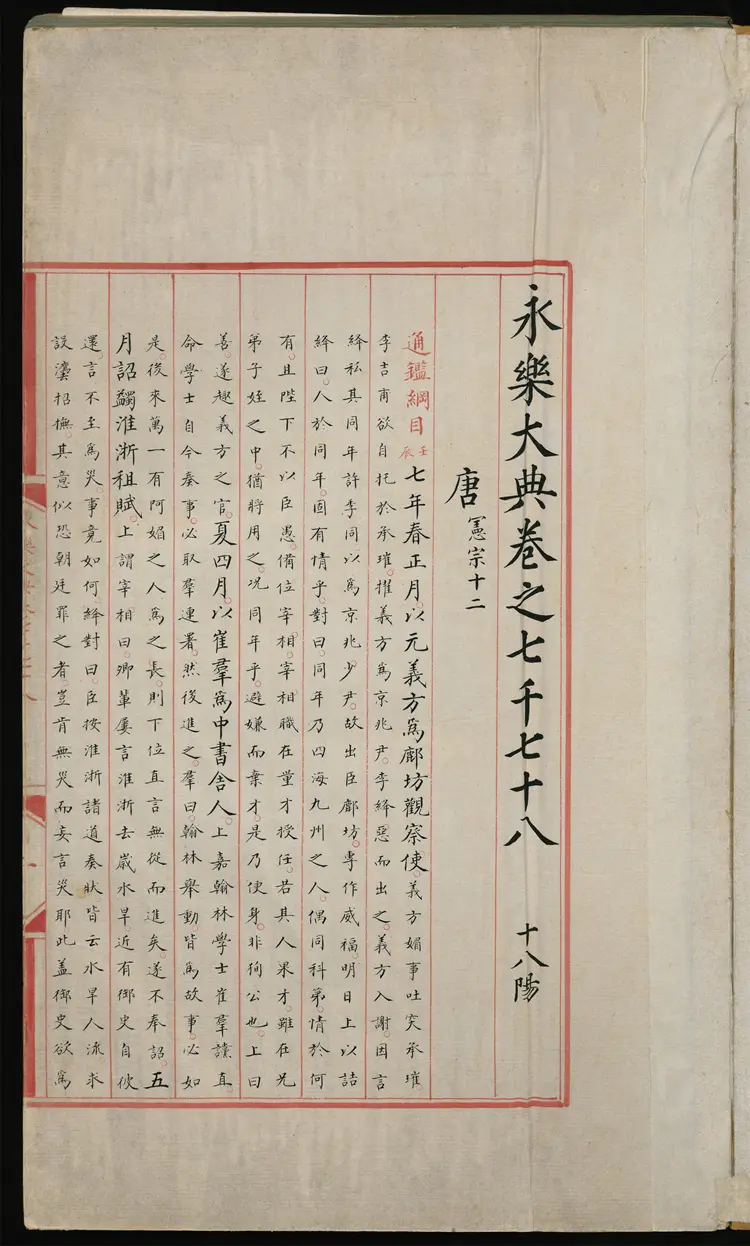 永樂大典卷之七千七十八 十八陽
唐 憲宗十二
通鑑綱目 壬辰 七年春正月。以元義方爲鄜坊觀察使。義方媚事吐突承璀。
李吉甫欲自托於承璀。擢義方爲京兆尹。李絳惡而出之。義方入謝。因言
絳私其同年許季同以爲京兆少尹。故出臣鄜坊。專作威福。明日上以詰
絳曰。人於同年。固有情乎。對曰。同年乃四海九州之人。偶同科第。情於何
有。且陛下不以臣愚。備位宰相。宰相職在量才授任。若其人果才。雖在兄
弟子姪之中。猶將用之。况同年乎。避嫌而棄才。是乃便身。非徇公也。上曰
善。遂趣義方之官。夏四月。以崔羣爲中書舍人。上嘉翰林學士崔羣讜直
命學士自今奏事。必取羣連署。然後進之。羣曰。翰林舉動。皆爲故事。必如
是。後來萬一有阿媚之人爲之長。則下位直言無從而進矣。遂不奉詔。五
月詔蠲淮浙租賦。上謂宰相曰。卿輩屢言淮浙去歲水旱。近有御史自彼
還。言不至爲災。事竟如何。絳對曰。臣按淮浙諸道奏狀。皆云水旱人流。求
設灋招撫。其意似恐朝廷罪之者豈肯無災而妄言災耶。此蓋御史欲爲